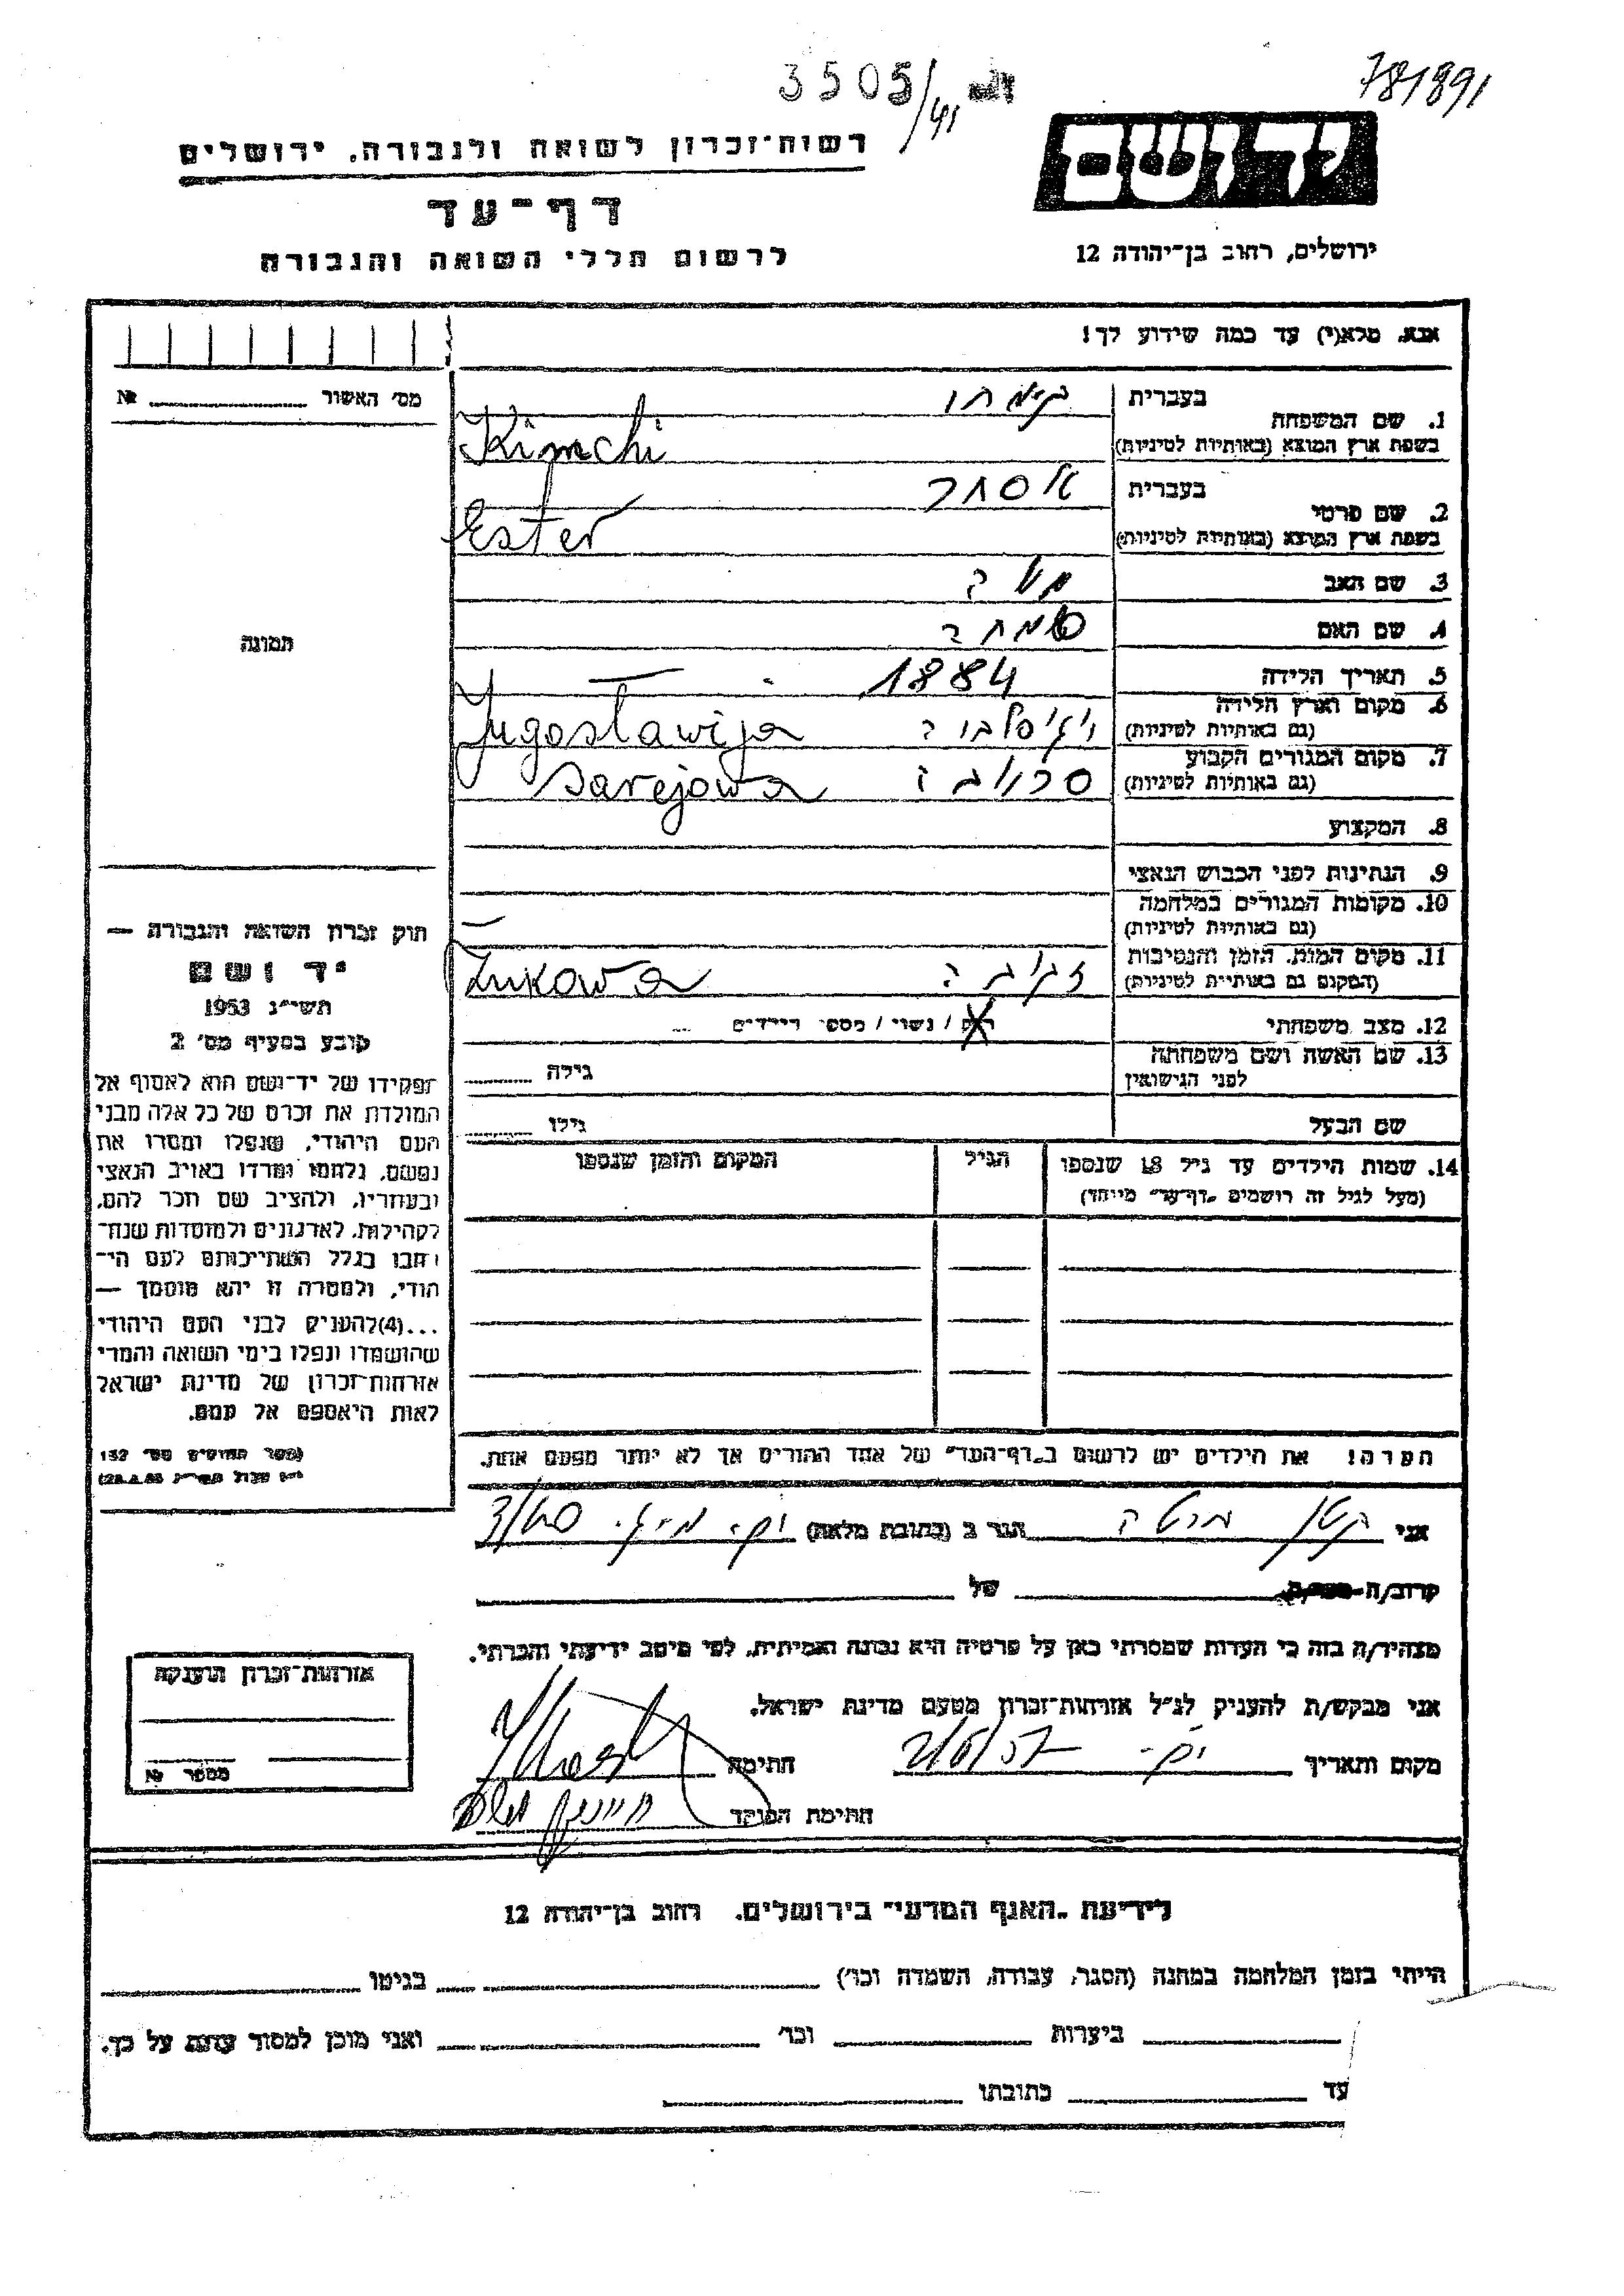 3505/41
781891
יד ושם
רשות-זכרון לשואה ולגבורה, ירושלים
דף-עד
לרשום חללי השואה והגבורה
ירושלים, רחוב בן-יהודה 12
אנא, מלא(י) עד כמה שידוע לך!
מס' האשור № 
1. שם המשפחה
בעברית קימחי
בשפת ארץ המוצא (באותיות לטיניות) Kimchi
2. שם פרטי
בעברית אסתר
בשפת ארץ המוצא (באותיות לטיניות) Ester
3. שם האב משה
4. שם האם שמחה
5. תאריך הלידה 1884 —
6. מקום וארץ הלידה
(גם באותיות לטיניות) Jugoslawija
7. מקום המגורים הקבוע
(גם באותיות לטיניות) Sarejowa
8. המקצוע
9. הנתינות לפני הכבוש הנאצי
10. מקומות המגורים במלחמה
(גם באותיות לטיניות) —
11. מקום המות, הזמן והנסיבות
(המקום גם באותיות לטיניות) Lukowa
12. מצב משפחתי רוק / נשוי / מספר הילדים
13. שם האשה ושם משפחתה
לפני הנישואין גילה
שם הבעל גילו
14. שמות הילדים עד גיל 18 שנספו הגיל המקום והזמן שנספו
(מעל לגיל זה רושמים "דף-עד" מיוחד)
הערה! את הילדים יש לרשום ב"דף-העד" של אחד ההורים אך לא יותר מפעם אחת.
תמונה
חוק זכרון השואה והגבורה —
יד ושם
תשי"ג 1953
קובע בסעיף מס' 2
תפקידו של יד-ושם הוא לאסוף אל
המולדת את זכרם של כל אלה מבני
העם היהודי, שנפלו ומסרו את
נפשם, נלחמו ומרדו באויב הנאצי
ובעוזריו, ולהציב שם וזכר להם,
לקהילות, לארגונים ולמוסדות שנח-
רבו בגלל השתייכותם לעם הי-
הודי, ולמטרה זו יהא מוסמך —
...(4) להעניק לבני העם היהודי
שהושמדו ונפלו בימי השואה והמרי
אזרחות-זכרון של מדינת ישראל
לאות היאספם אל עמם.
(ספר החוקים מס' 132
אני הגר ב (כתובת מלאה)
קרוב/ה של
מצהיר/ה בזה כי העדות שמסרתי כאן על פרטיה היא נכונה ואמיתית, לפי מיטב ידיעתי והכרתי.
אני מבקש/ת להעניק לנ"ל אזרחות-זכרון מטעם מדינת ישראל.
מקום ותאריך חתימה
חתימת הפוקד
אזרחות-זכרון הוענקה
מספר №
לידיעת "האגף המדעי" בירושלים, רחוב בן-יהודה 12
הייתי בזמן המלחמה במחנה (הסגר, עבודה, השמדה וכו') בגיטו
ביערות וכו' ואני מוכן למסור עדות על כך.
עד כתובתו